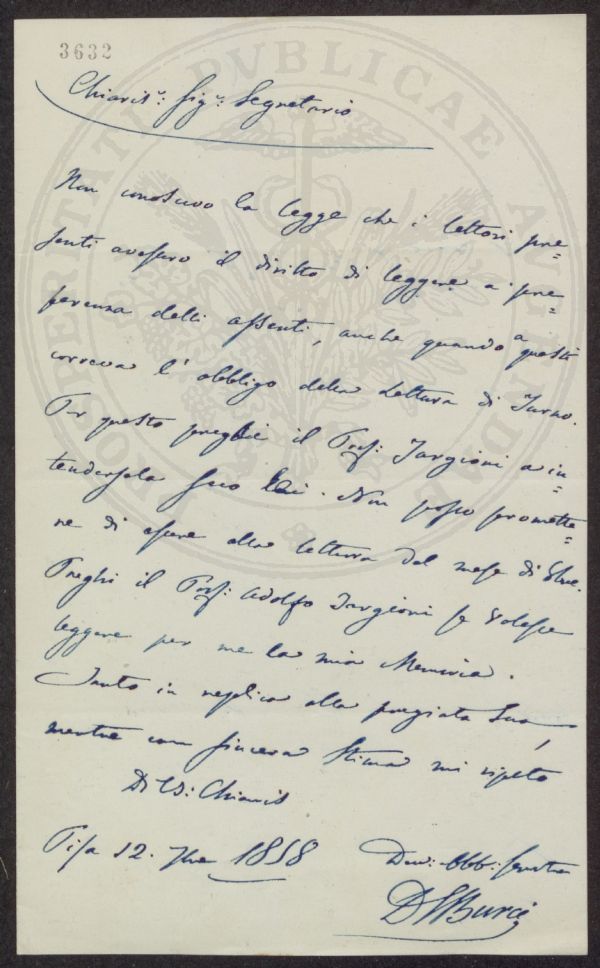 3632
PROSPERITATI PUBLICAE AUGENDAE
Chiaris.º Sig.º Segretario
Non conoscevo la legge che i lettori pre=
senti avessero il diritto di leggere a pre=
ferenza delli assenti, anche quando a questi
correva l'obbligo della Lettura di Turno.
Per questo pregai il Prof: Targioni a in=
tendersela seco Lei. Non posso promette=
re di essere alla lettura del mese di 9bre.
Preghi il Prof: Adolfo Targioni se volesse
leggere per me la mia Memoria.
Tanto in replica alla pregiata Sua,
mentre con sincera stima mi ripeto
Di VS: Chiaris
Pisa 12. 7bre 1858
Dev: Obb: Servitore
Burci